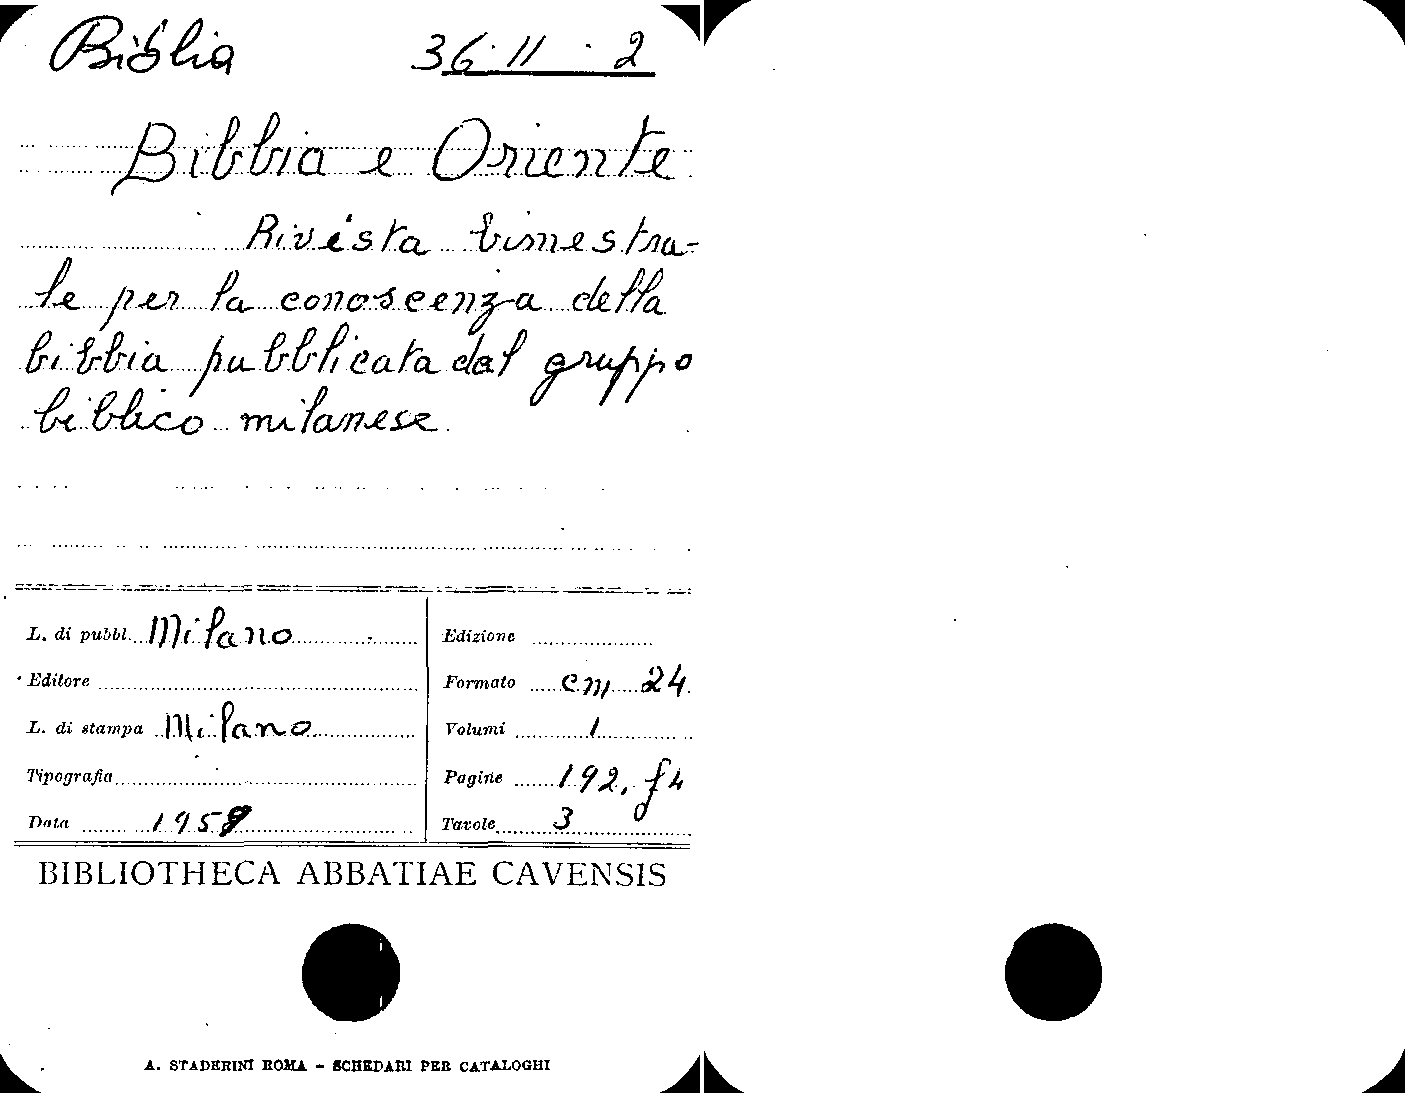 Biblia 36·11·2
Bibbia e Oriente
Rivista bimestra-
le per la conoscenza della
bibbia pubblicata dal gruppo
biblico milanese
L. di pubbl. Milano
Editore
L. di stampa Milano
Tipografia
Data 1959
Edizione
Formato cm 24
Volumi 1
Pagine 192, f4
Tavole 3
BIBLIOTHECA ABBATIAE CAVENSIS
A. STADERINI ROMA - SCHEDARI PER CATALOGHI